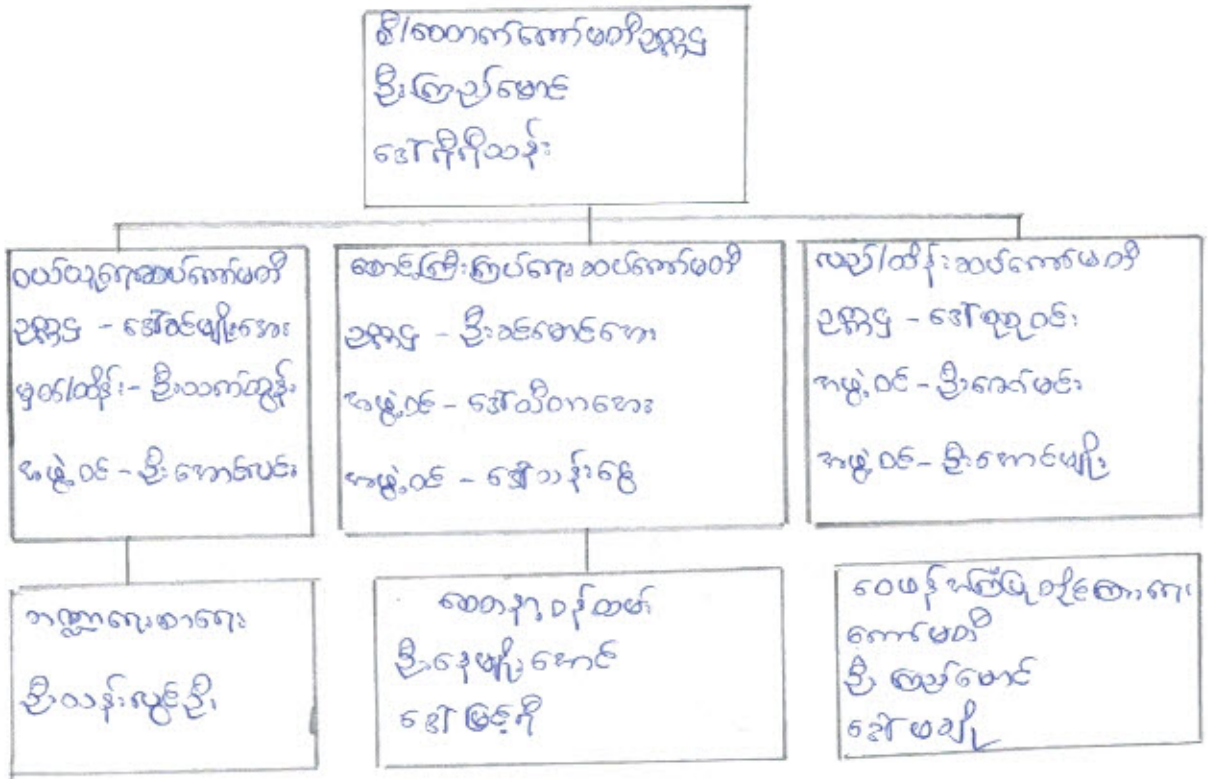 စီ/ဆောက်ကော်မတီဥက္ကဌ
ဦးကြည်မောင်
ဒေါ်ရီရီသန်း
ဝယ်ယူရေးဆပ်ကော်မတီ
ဥက္ကဌ - ဒေါ်ခင်မျိုးအေး
မှတ်/ထိန်း - ဦးသက်ထွန်း
အဖွဲ့ဝင် - ဦးအောင်မင်း
စောင့်ကြီးကြပ်ရေးဆပ်ကော်မတီ
ဥက္ကဌ - ဦးခင်မောင်အေး
အဖွဲ့ဝင် - ဒေါ်သီတာအေး
အဖွဲ့ဝင် - ဒေါ်သန်းငွေ
လည်/ထိန်းဆပ်ကော်မတီ
ဥက္ကဌ - ဒေါ်စုစုဝင်း
အဖွဲ့ဝင် - ဦးဇော်မင်း
အဖွဲ့ဝင် - ဦးအောင်မျိုး
ဘဏ္ဍာရေးစာရေး
ဦးသန်းလွင်ဦး
စေတနာ့ဝန်ထမ်း
ဦးနေမျိုးအောင်
ဒေါ်မြင့်ရီ
ဝေဖန်အကြံပြုတိုင်ကြားရေး
ကော်မတီ
ဦးကြည်မောင်
ဒေါ်မချို